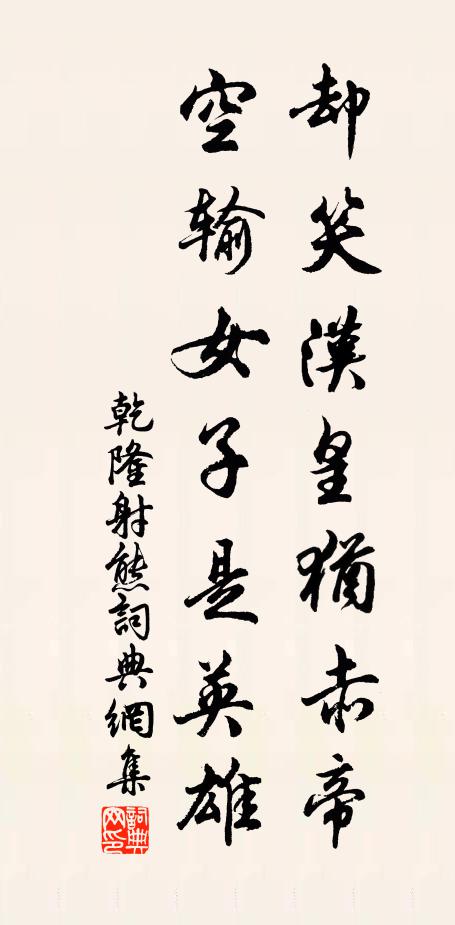 却笑漢皇猶赤帝
空输女子是英雄
乾隆射熊詞典網集
詞典网印